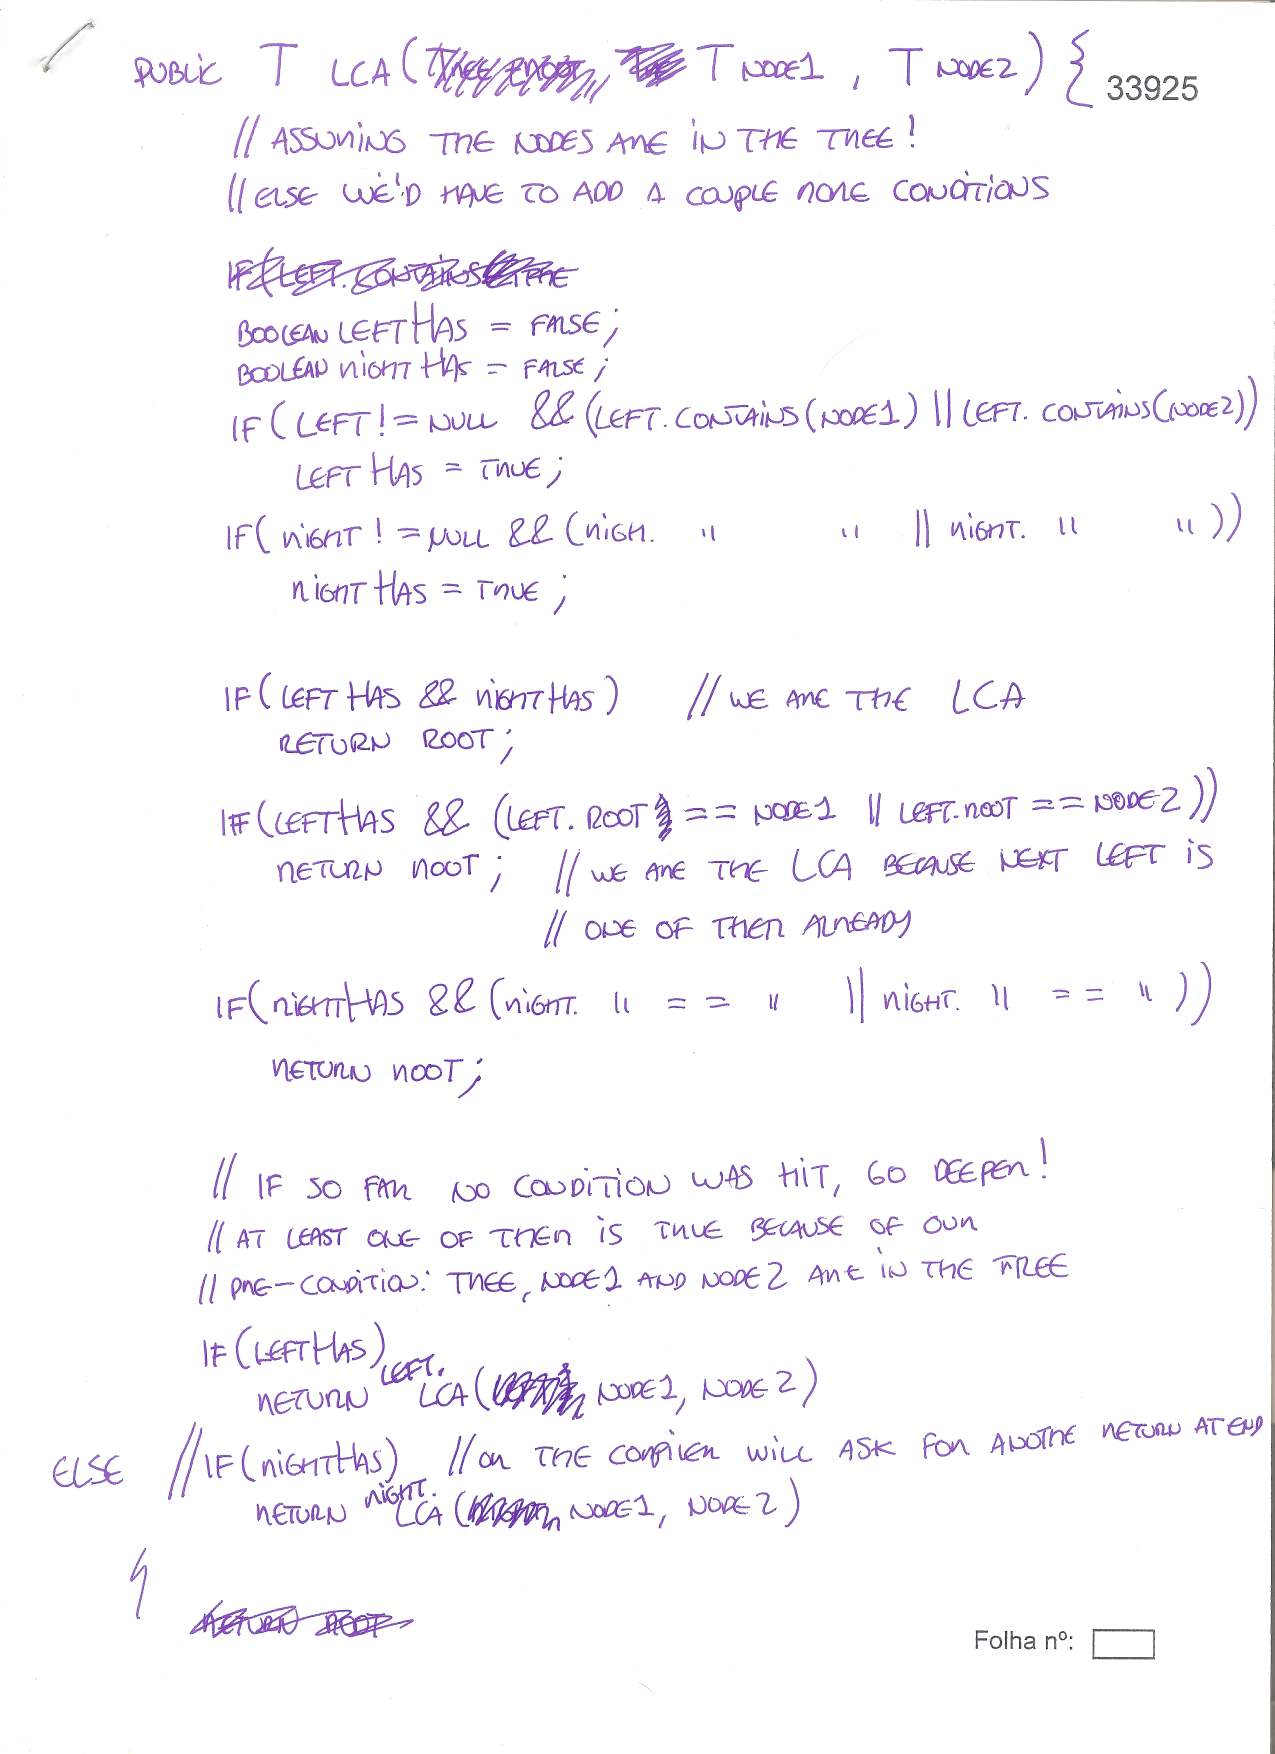 PUBLIC T LCA( T NODE1 , T NODE2) {
33925
// ASSUMING THE NODES ARE IN THE TREE!
// ELSE WE'D HAVE TO ADD A COUPLE MORE CONDITIONS
IF(LEFT.CONTAINS
BOOLEAN LEFTHAS = FALSE;
BOOLEAN RIGHTHAS = FALSE;
IF(LEFT != NULL && (LEFT.CONTAINS(NODE1) || LEFT.CONTAINS(NODE2))
LEFTHAS = TRUE;
IF(RIGHT != NULL && (RIGH. " " || RIGHT. " " ))
RIGHTHAS = TRUE;
IF(LEFTHAS && RIGHTHAS) // WE ARE THE LCA
RETURN ROOT;
IF(LEFTHAS && (LEFT.ROOT == NODE1 || LEFT.ROOT == NODE2))
RETURN ROOT; // WE ARE THE LCA BECAUSE NEXT LEFT IS
// ONE OF THEM ALREADY
IF(RIGHTHAS && (RIGHT. " == " || RIGHT. " == " ))
RETURN ROOT;
// IF SO FAR NO CONDITION WAS HIT, GO DEEPER!
// AT LEAST ONE OF THEM IS TRUE BECAUSE OF OUR
// PRE-CONDITION: TREE, NODE1 AND NODE2 ARE IN THE TREE
IF(LEFTHAS)
RETURN LEFT.LCA( NODE1, NODE2)
ELSE //IF(RIGHTHAS) //OR THE COMPILER WILL ASK FOR ANOTHE RETURN AT END
RETURN RIGHT.LCA( NODE1, NODE2)
}
RETURN ROOT
Folha nº: